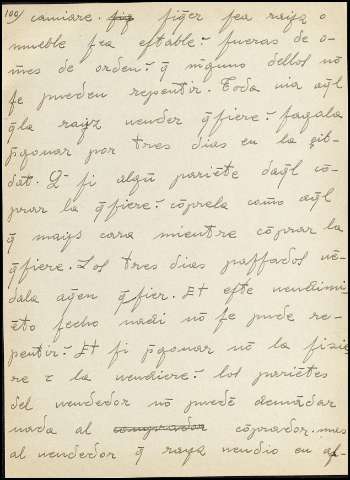 100/ camiare. fiq̃ fiq̃er fea raiz̧ o
mueble fea eftable.~ fueras de o-
m̃es de orden.~ q̃ ninguno dellos nõ
fe pueden repentir. Toda uia aq̃l
q̃la rayz uender q̃fiere.~ fagala
p̃gonar por tres dias en la çib-
dat. & fi algũ pariẽte daq̃l cõ-
prar la q̃fiere.~ cõprela como aq̃l
q̃ mays cara mientre cõprar la
q̃fiere. Los tres dias paffados uẽ-
dala aq̃en q̃fier. Et efte uendimi-
ẽto fecho nadi nõ fe puede re-
pentir.~ Et fi p̃gonar nõ la fizie
re τ la uendiere.~ los pariẽtes
del uendedor nõ puedẽ demãdar
nada al comprador cõprador. mas
al uendedor q̃ rayz uendio en af-